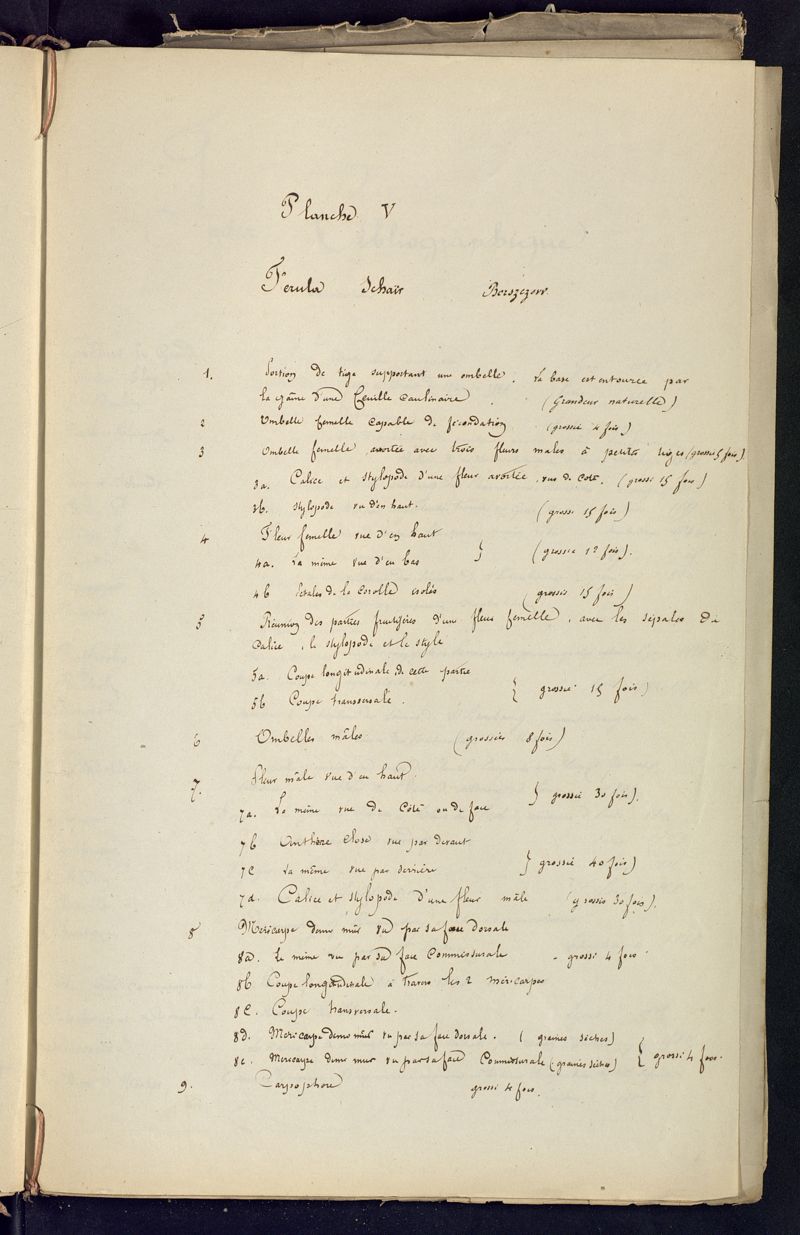 Planche V
Ferula Schaïr Borszczow
1. Portion de tige supportant une ombelle. La base est entourée par
la gâine d'une feuille caulinaire. (Grandeur naturelle)
2 Ombelle femelle capable de fécondation (grossie 4 fois)
3 Ombelle femelle avortée avec trois fleurs mâles à petites tiges (grossie 5 fois)
3a. Calice et stylopode d'une fleur avortée, vus de coté. (grossi 15 fois)
3b. Stylopode vu d'en haut. (grossi 15 fois)
4 Fleur femelle vue d'en haut
4a. La même vue d'en bas } (grossie 12 fois).
4b Pétales de la corolle isolés (grossis 15 fois)
5 Réunion des parties fructifères d'une fleur femelle, avec les sépales du
calice, le stylopode et le style
5a. Coupe longitudinale de cette partie
5b Coupe transversale. } grossie 15 fois)
6 Ombelles mâles (grossies 8 fois)
7. Fleur mâle vue d'en haut.
7a. La même vue de coté ou de face } grossie 30 fois).
7b Anthère close vue par devant
7c La même vue par derrière } grossie 40 fois)
7d. Calice et stylopode d'une fleur mâle (grossis 30 fois).
8 Méricarpe demi mûr vu par sa face dorsale
8a. Le même vu par sa face commissurale - grossi 4 fois.
8b Coupe longitudinale à travers les 2 méricarpes
8c. Coupe transversale.
8d. Méricarpe demi mûr vu par sa face dorsale. (graines sèches)
8e. Méricarpe demi mur vu par sa face commissurale (graines sèches) } grossi 4 fois.
9. Carpophore grossi 4 fois.